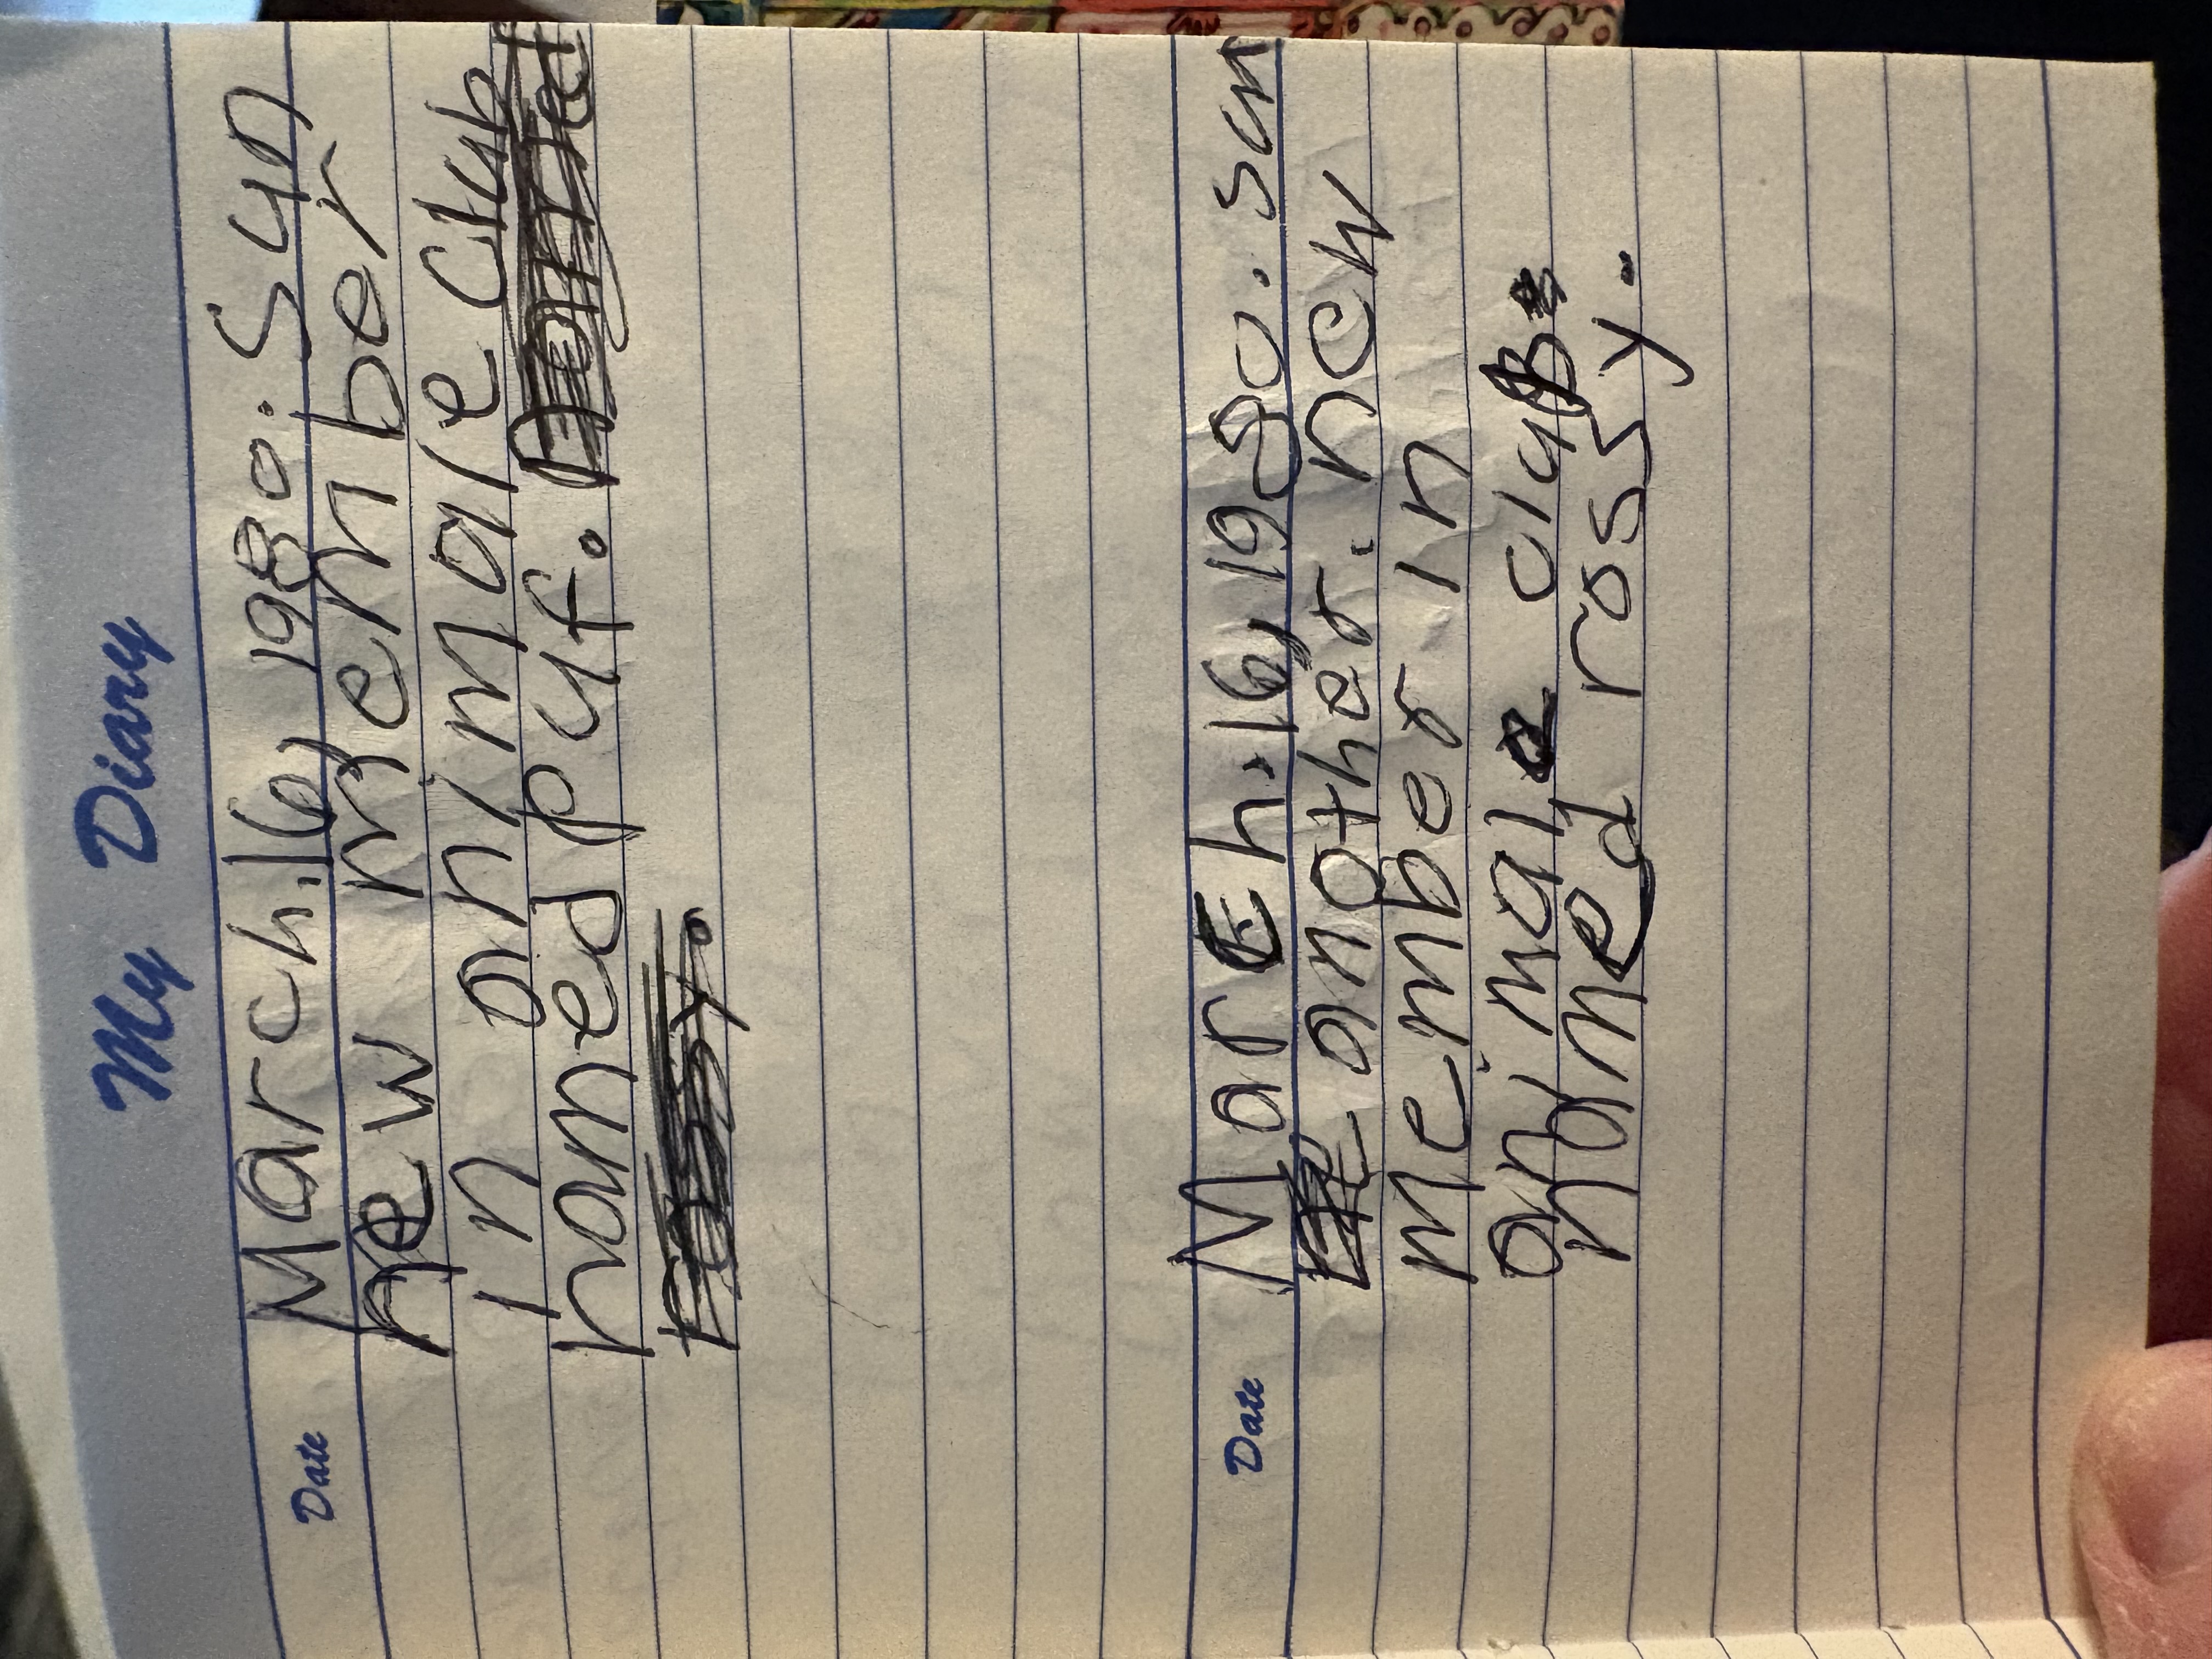 My Diary
Date March.16, 1980. Sun
new member
in animale club
named puf.
Date March.16, 1980. Sun
another new
member in
animal club
named rossy.